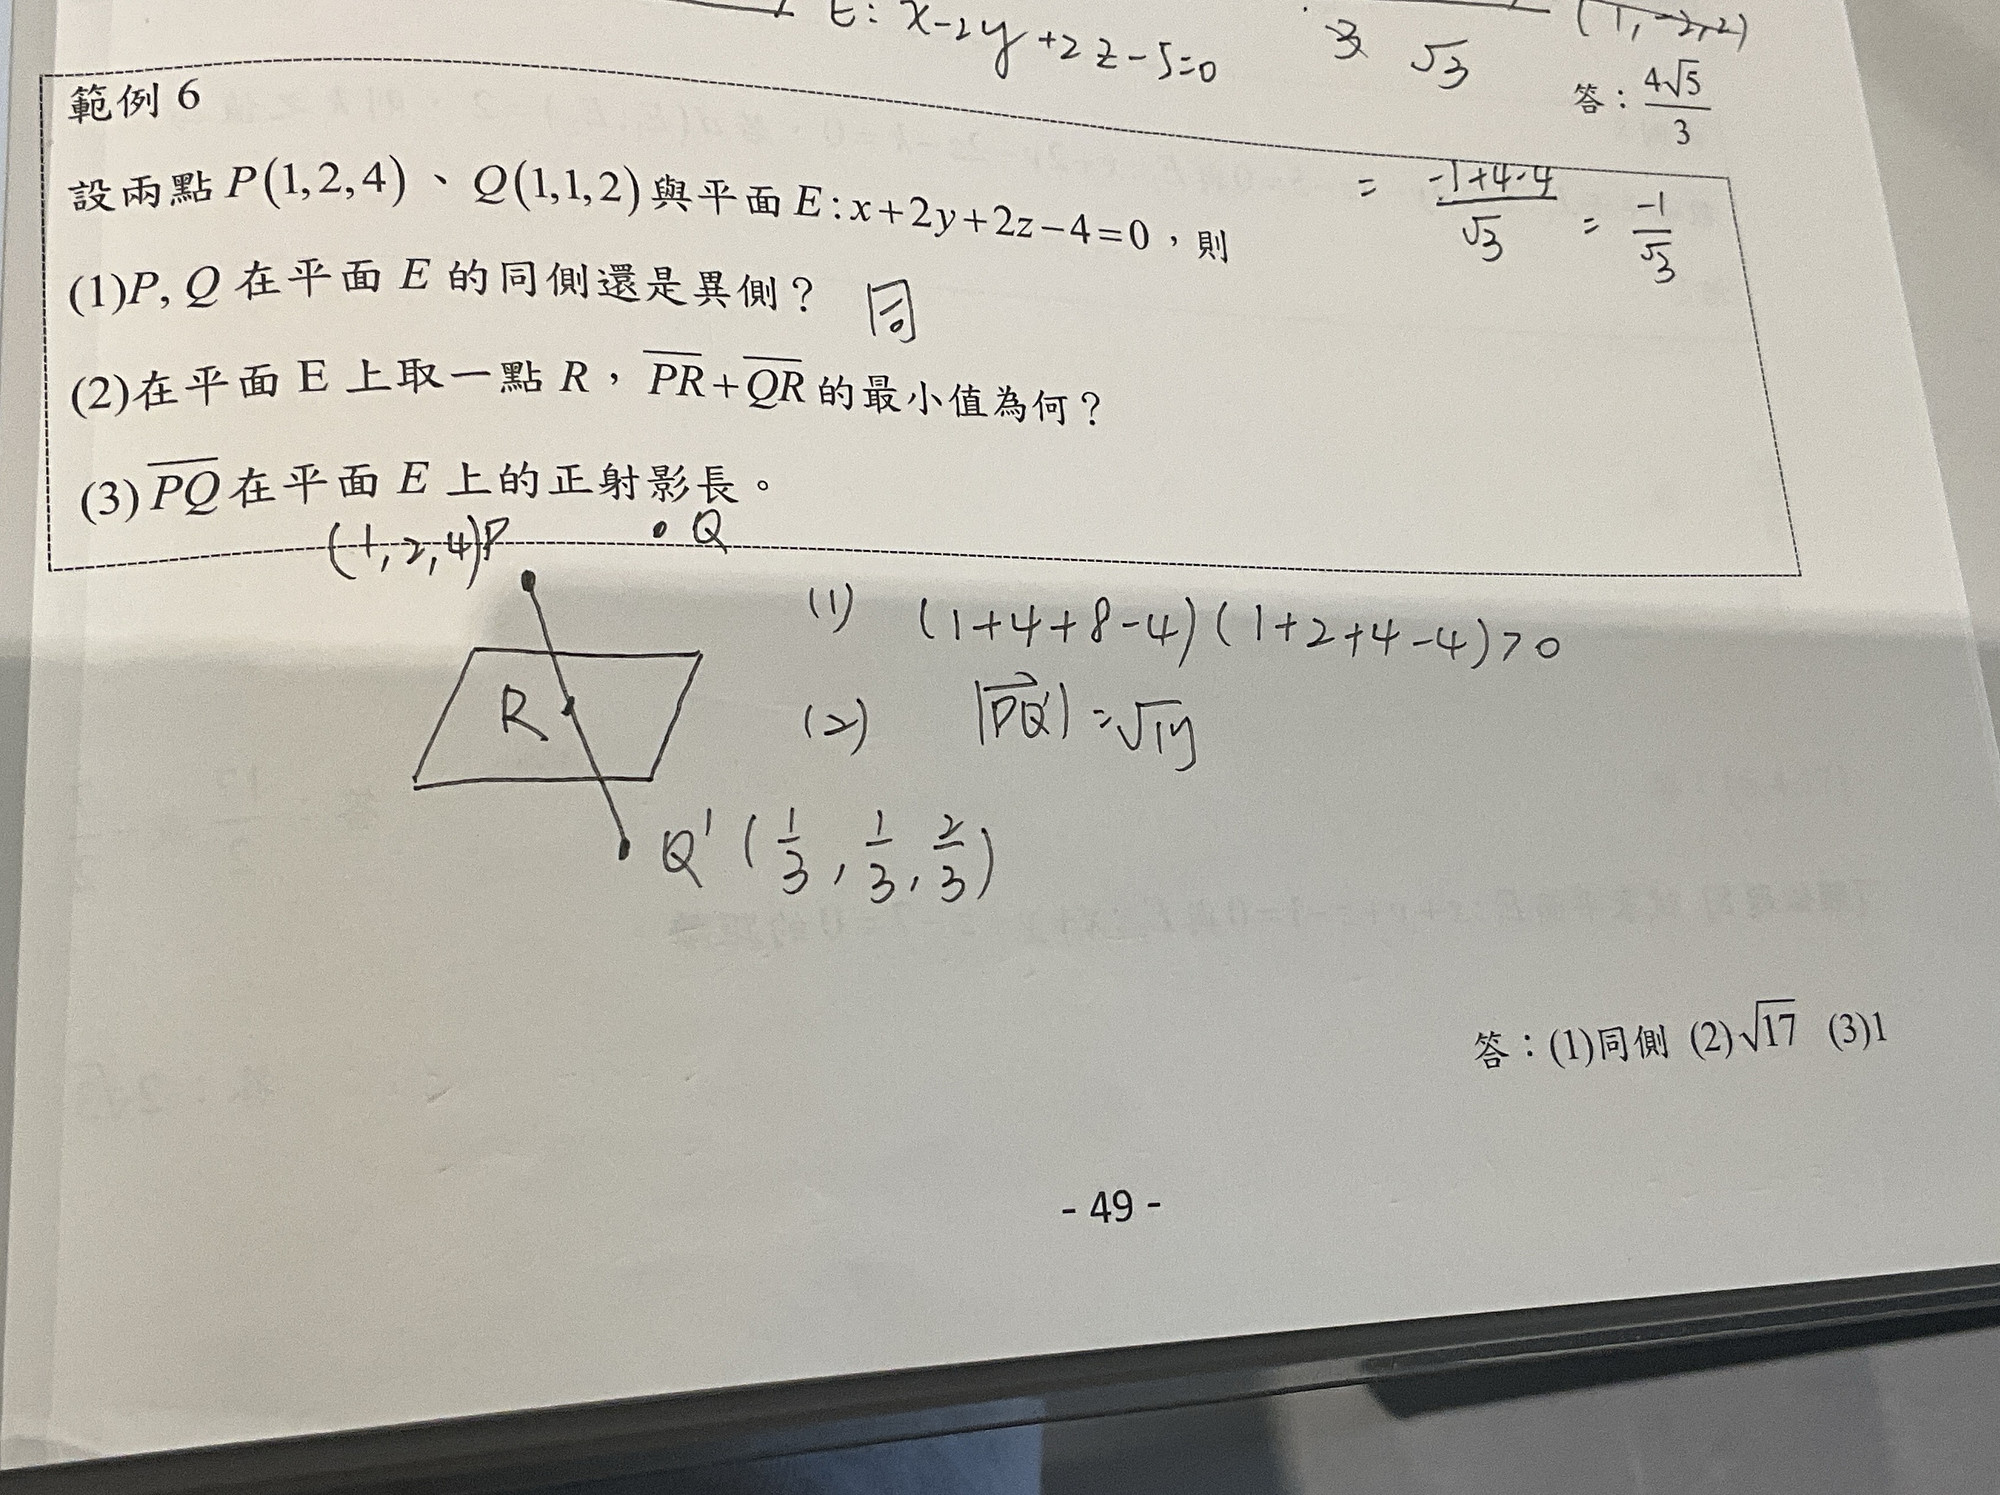 E: x-2y+2z-5=0
3 √3 (1,-2,2)
答：4√5/3
範例 6
設兩點 P(1,2,4)、Q(1,1,2)與平面 E:x+2y+2z-4=0，則
= -1+4-4/√3 = -1/√3
(1)P, Q 在平面 E 的同側還是異側？ 同
(2)在平面 E 上取一點 R，PR+QR 的最小值為何？
(3)PQ 在平面 E 上的正射影長。
(1,2,4)P Q
(1) (1+4+8-4)(1+2+4-4)>0
R
(2) |PQ'| = √17
Q' (1/3, 1/3, 2/3)
答：(1)同側 (2)√17 (3)1
- 49 -